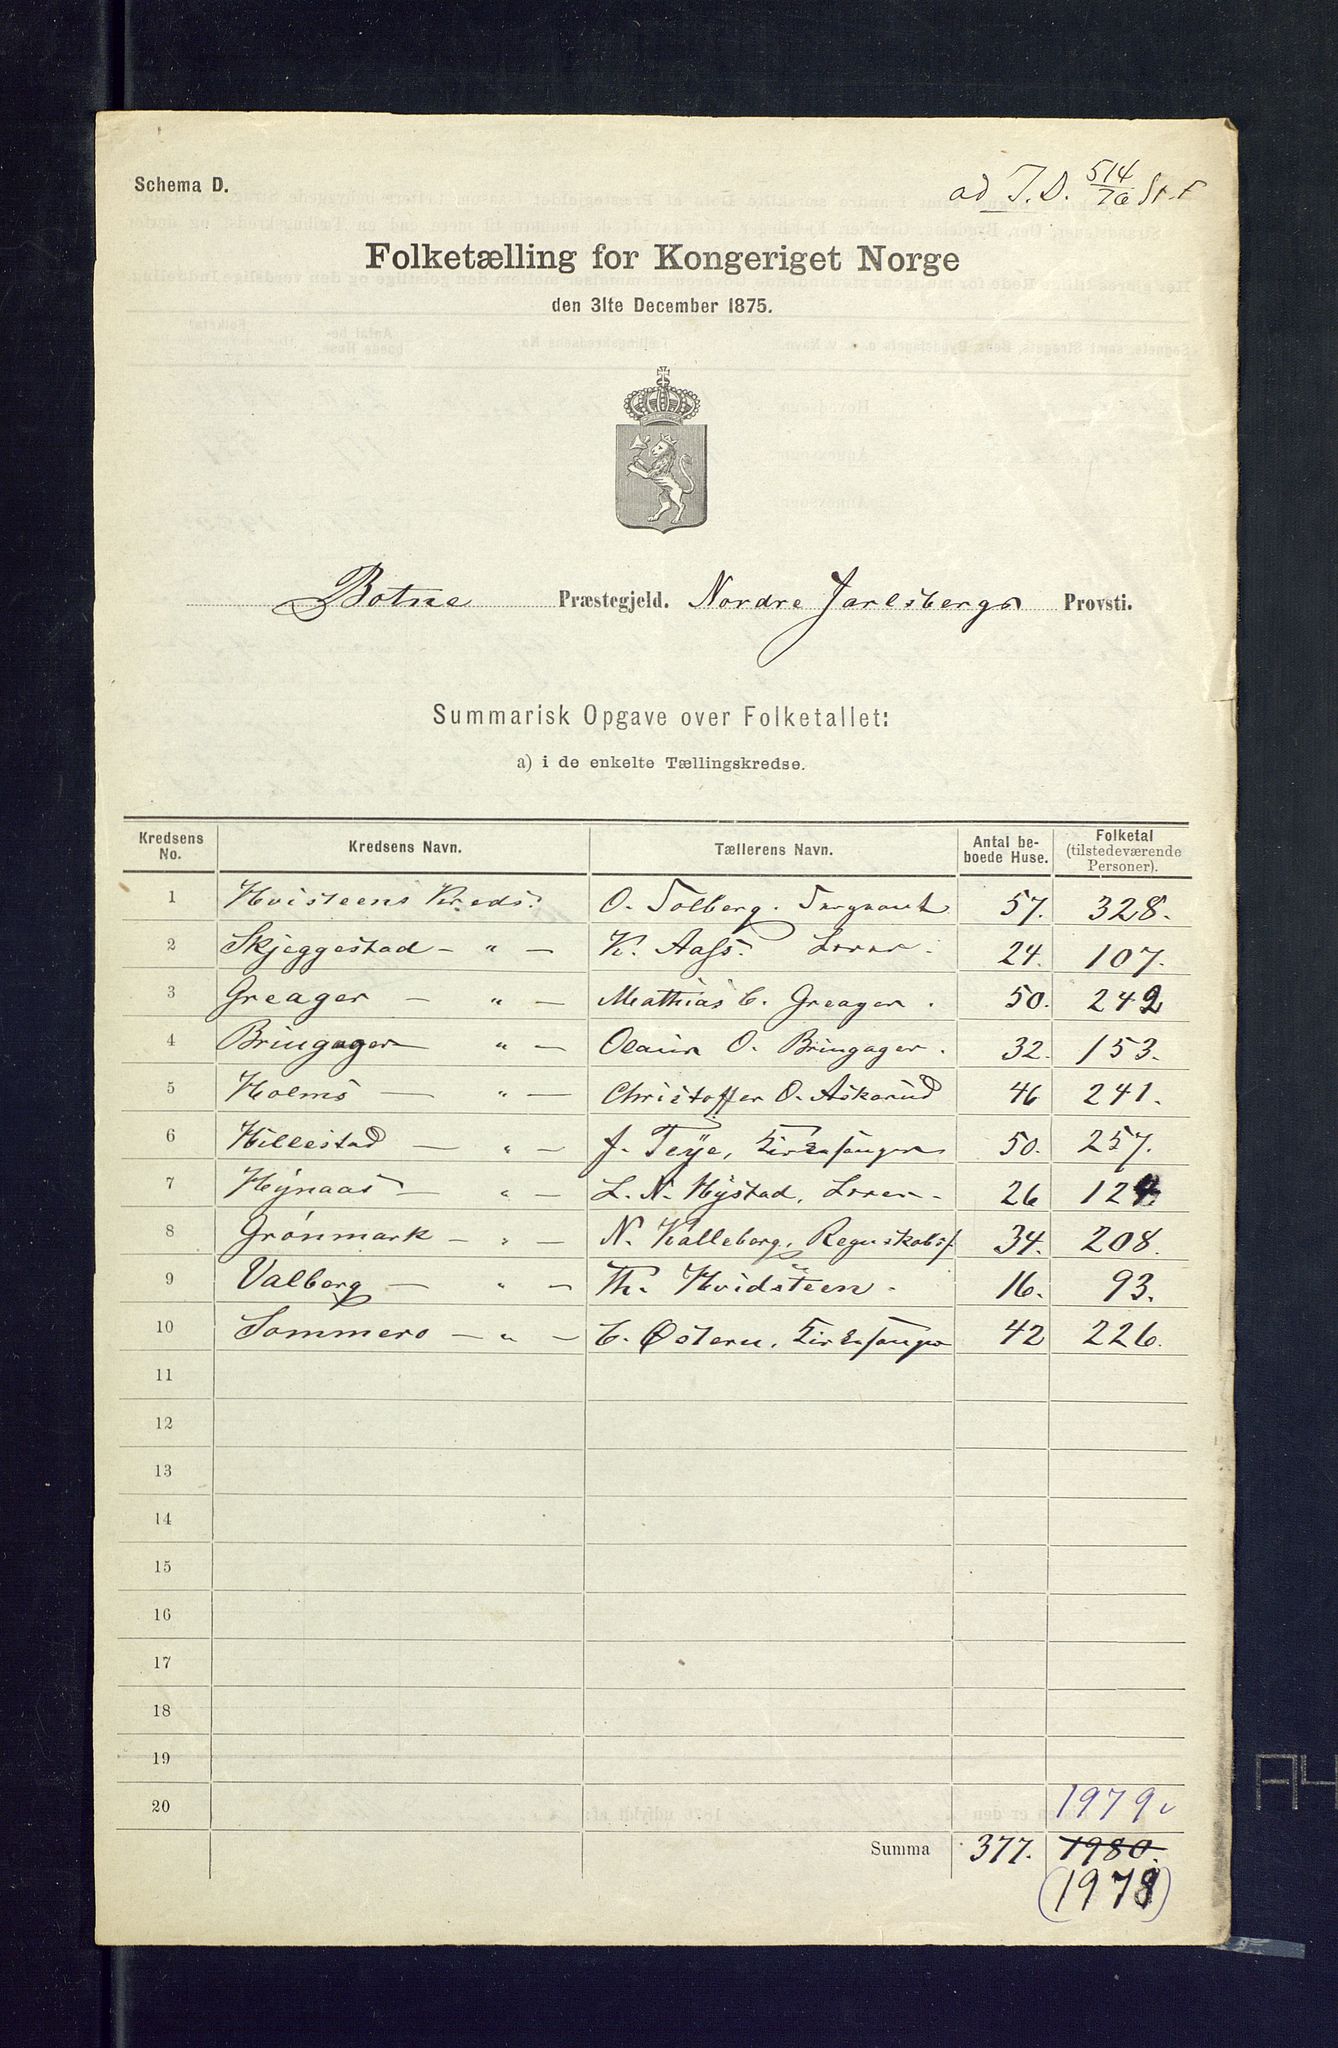 Schema D.
ad J. D. 514/76 St. F
Folketælling for Kongeriget Norge
den 31te December 1875.
Botne Præstegjeld. Nordre Jarlsbergs Provsti.
Summarisk Opgave over Folketallet:
a) i de enkelte Tællingskredse.
Kredsens No. Kredsens Navn. Tællerens Navn. Antal beboede Huse. Folketal (tilstedeværende Personer).
1 Hvisteens Kreds. O. Solberg. Sergeant 57. 328.
2 Skjeggestad - " - K. Aass. Lærer. 24. 107.
3 Greager - " - Mathias C. Greager. 50. 242
4 Bringager - " - Olaus O. Bringager. 32. 153.
5 Holms - " - Christoffer O. Askerud 46 241.
6 Hillestad - " - J. Teye, Kirkesanger 50. 257.
7 Hÿnaas - " - L. N. Hÿstad, Lærer. 26 124
8 Grønmark - " - N. Kalleberg, Regnskabsf. 34. 208.
9 Valberg - " - Th. Hvidsteen. 16. 93.
10 Sommero - " - C. Østern, Kirkesanger 42 226.
11
12
13
14
15
16
17
18
19
20 1979
Summa 377. 1980.
(1979)